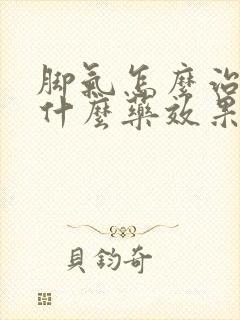 脚氣怎麼治
什麼藥效果
貝鈞奇